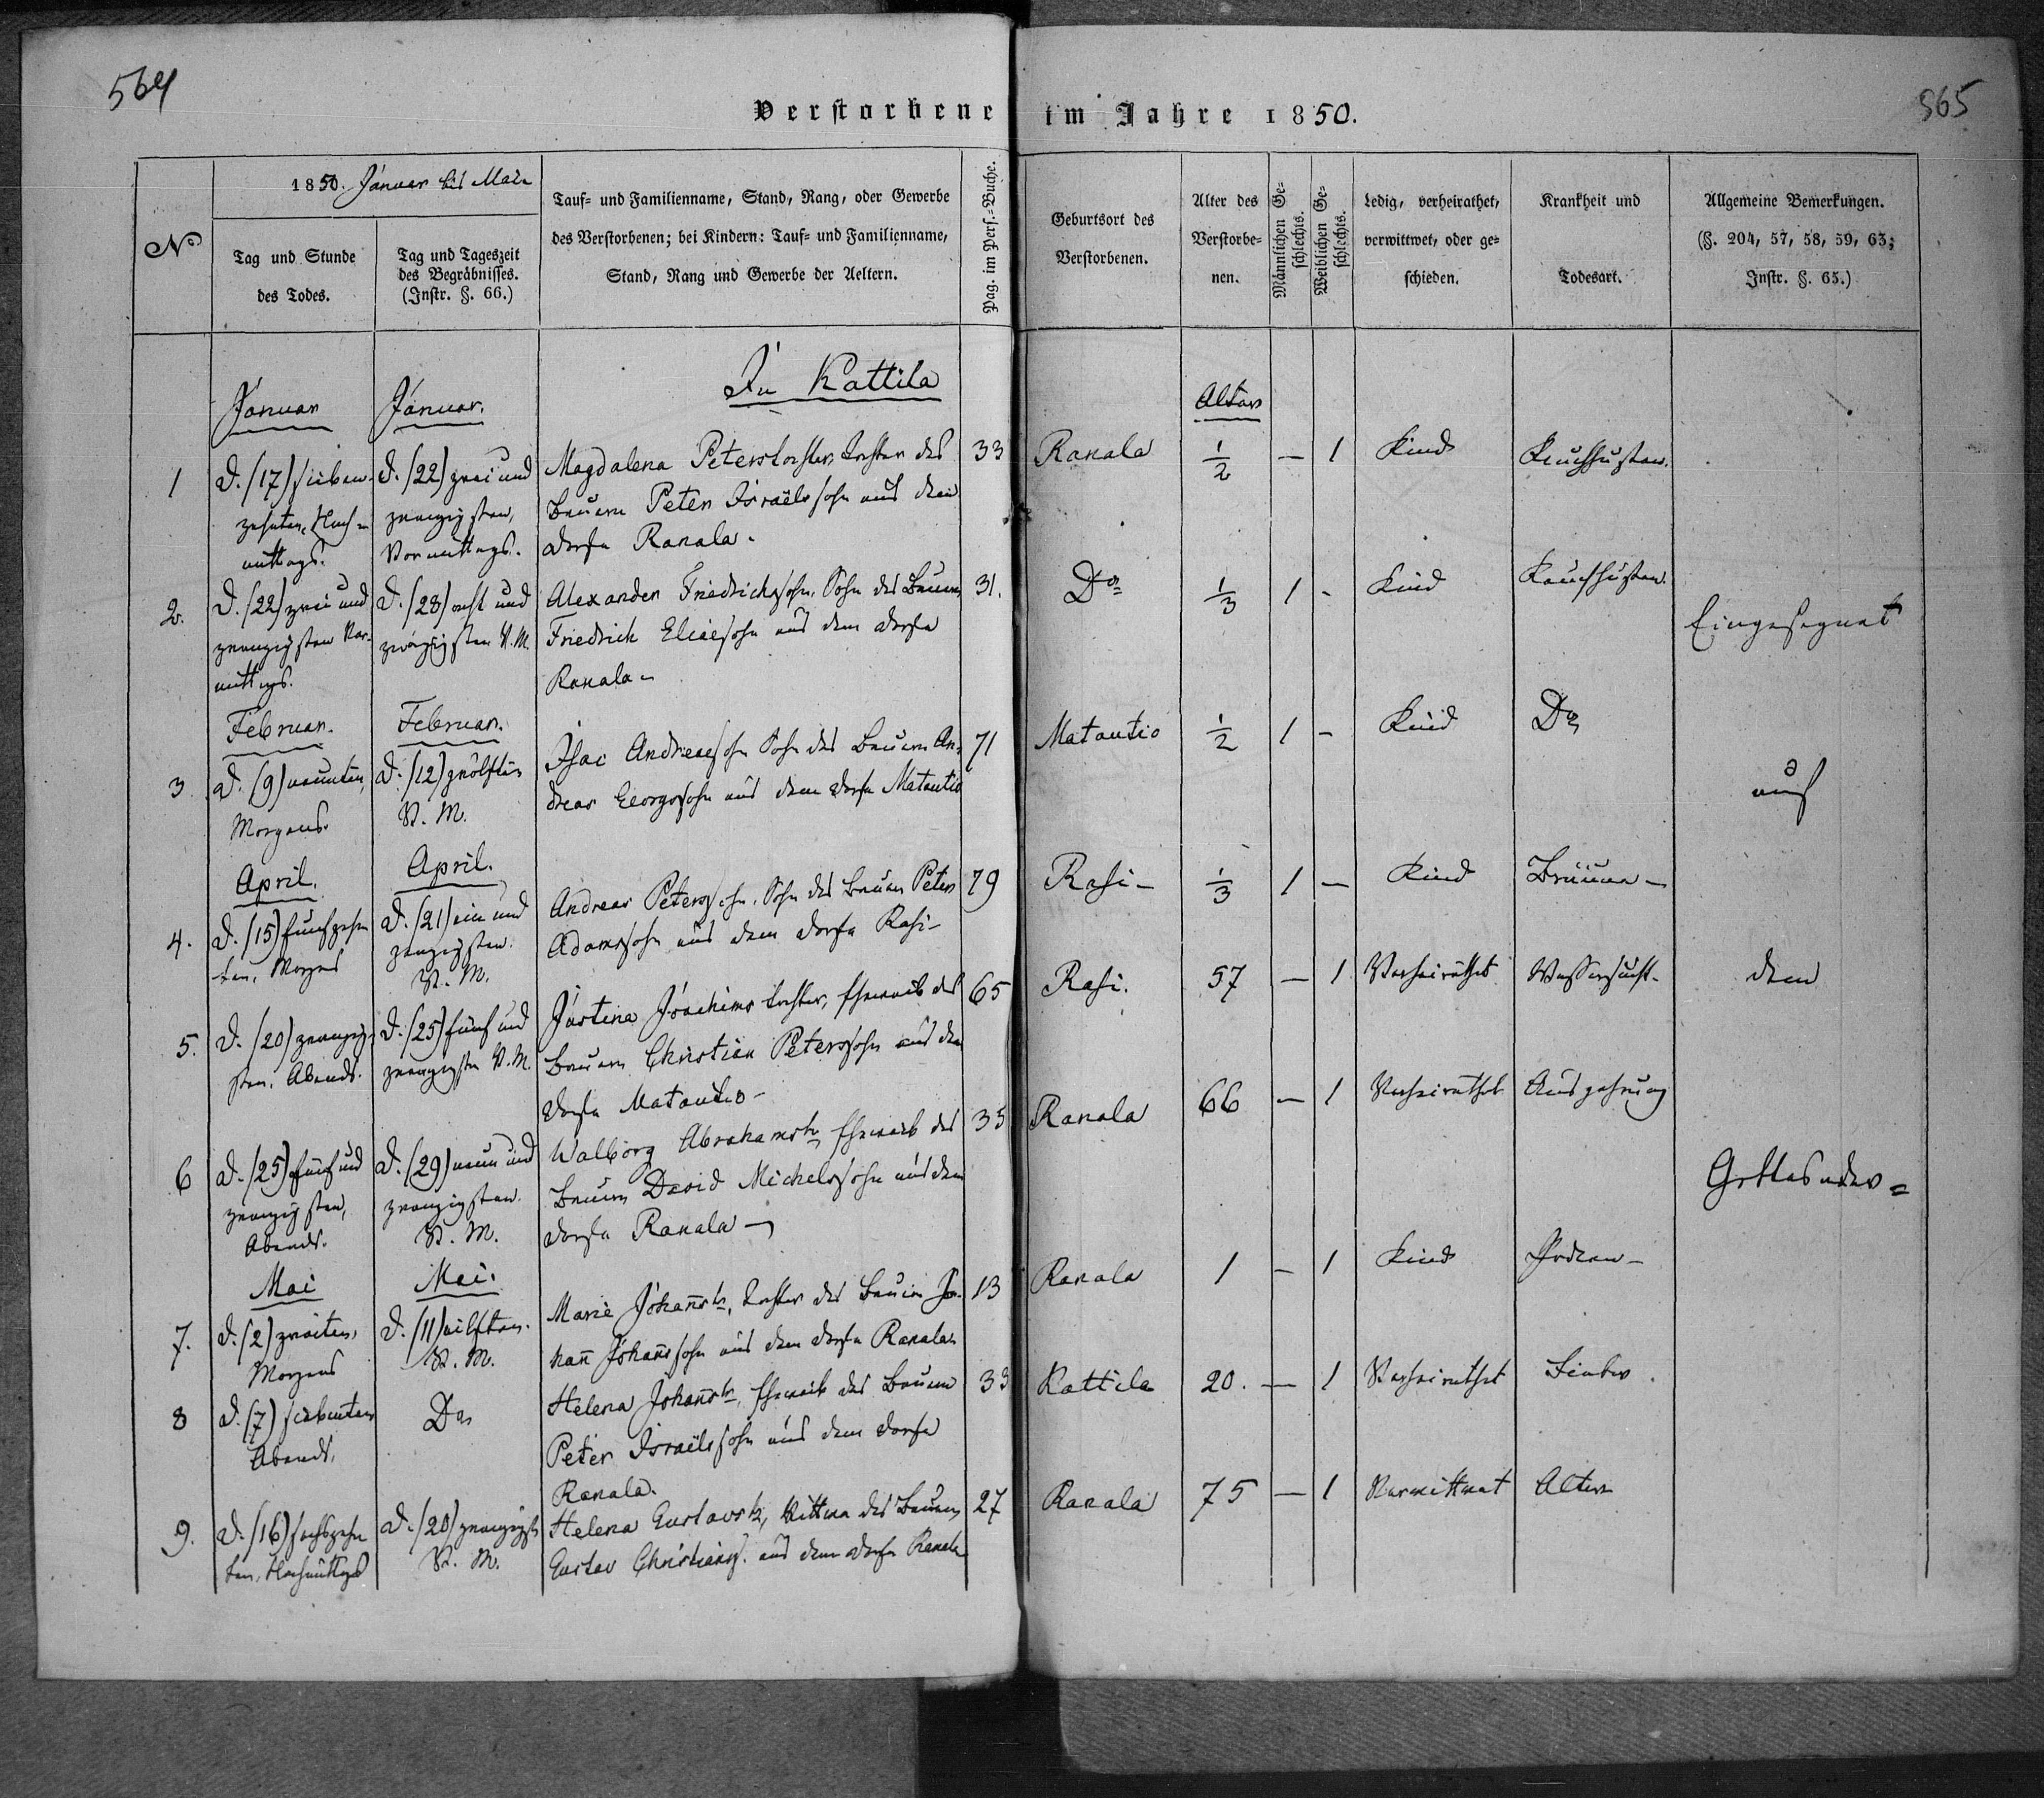 564
565
Verstorbene im Jahre 1850.
1850. Januar bis Mai
No
Tag und Stunde
des Todes.
Tag und Tageszeit
des Begräbnisses.
(Instr. §. 66.)
Tauf= und Familienname, Stand, Rang, oder Gewerbe
des Verstorbenen; bei Kindern: Tauf= und Familienname,
Stand, Rang und Gewerbe der Aeltern.
Pag. im Pers.=Buche.
Geburtsort des
Verstorbenen.
Alter des
Verstorbe=
nen.
Männlichen Ge=
schlechts.
Weiblichen Ge=
schlechts.
Ledig, verheirathet,
verwittwet, oder ge=
schieden.
Krankheit und
Todesart.
Allgemeine Bemerkungen.
(§. 204, 57, 58, 59, 63;
Instr. §. 65.)
In Kattila
Januar Januar. Alter
1 d. (17) sieben- d. (22) zwei und Magdalena Peterstochter, Tochter des 33 Ranala 1/2 — 1 Kind Keuchhusten.
zehnten, Nach= zwanzigsten, Bauern Peter Israëlssohn aus dem
mittags. Vormittags. Dorfe Ranala.
2. d. (22) zwei und d. (28) acht und Alexander Friedrichssohn, Sohn des Bauern 31. Do 1/3 1 - Kind Keuchhusten.
zwanzigsten Vor- zwanzigsten V. M. Friedrich Eliessohn aus dem Dorfe Eingesegnet
mittags. Ranala
Februar. Februar.
3 d. (9) neunten, d. (12) zwölften Isac Andreassohn Sohn des Bauern An- 71 Matautio 1/2 1 - Kind Do
Morgens. V. M. dreas Georgssohn aus dem Dorfe Matautio auf
April. April.
4. d. (15) fünfzehn d. (21) ein und Andreas Peterssohn, Sohn des Bauern Peter 79 Rasi — 1/3 1 — Kind Bräune —
ten, Morgens zwanzigsten. Adamssohn aus dem Dorfe Rasi —
V. M.
5. d. (20) zwanzig- d. (25) fünf und Justina Joachimstochter, Eheweib des 65 Rasi. 57 — 1 Verheirathet Wassersucht. dem
sten, Abends. zwanzigsten V. M. Bauern Christian Peterssohn aus dem
Dorfe Matautio —
6 d. (25) fünf und d. (29) neun und Walborg Abrahamstr Eheweib des 35 Ranala 66 — 1 Verheirathet Auszehrung
zwanzigsten, zwanzigsten. Bauern David Michelssohn aus dem
Abends. V. M. Dorfe Ranala — Gottesacker=
Mai Mai.
7. d. (2) zweiten, d. (11) eilften. Marie Johannstr, Tochter des Bauern Jo- 13 Ranala 1 — 1 Kind Pocken —
Morgens V. M. hann Johannssohn aus dem Dorfe Ranala
8 d. (7) siebenten Do Helena Johannstr, Eheweib des Bauern 33 Kattila 20. — 1 Verheirathet Fieber.
Abends. Peter Israëlssohn aus dem Dorfe
Ranala.
9. d. (16) sechszehn d. (20) zwanzigst Helena Gustavstr, Wittwe des Bauern 27 Ranala 75 — 1 Verwittwet Alter
ten, Nachmittags V. M. Gustav Christians. aus dem Dorfe Ranala